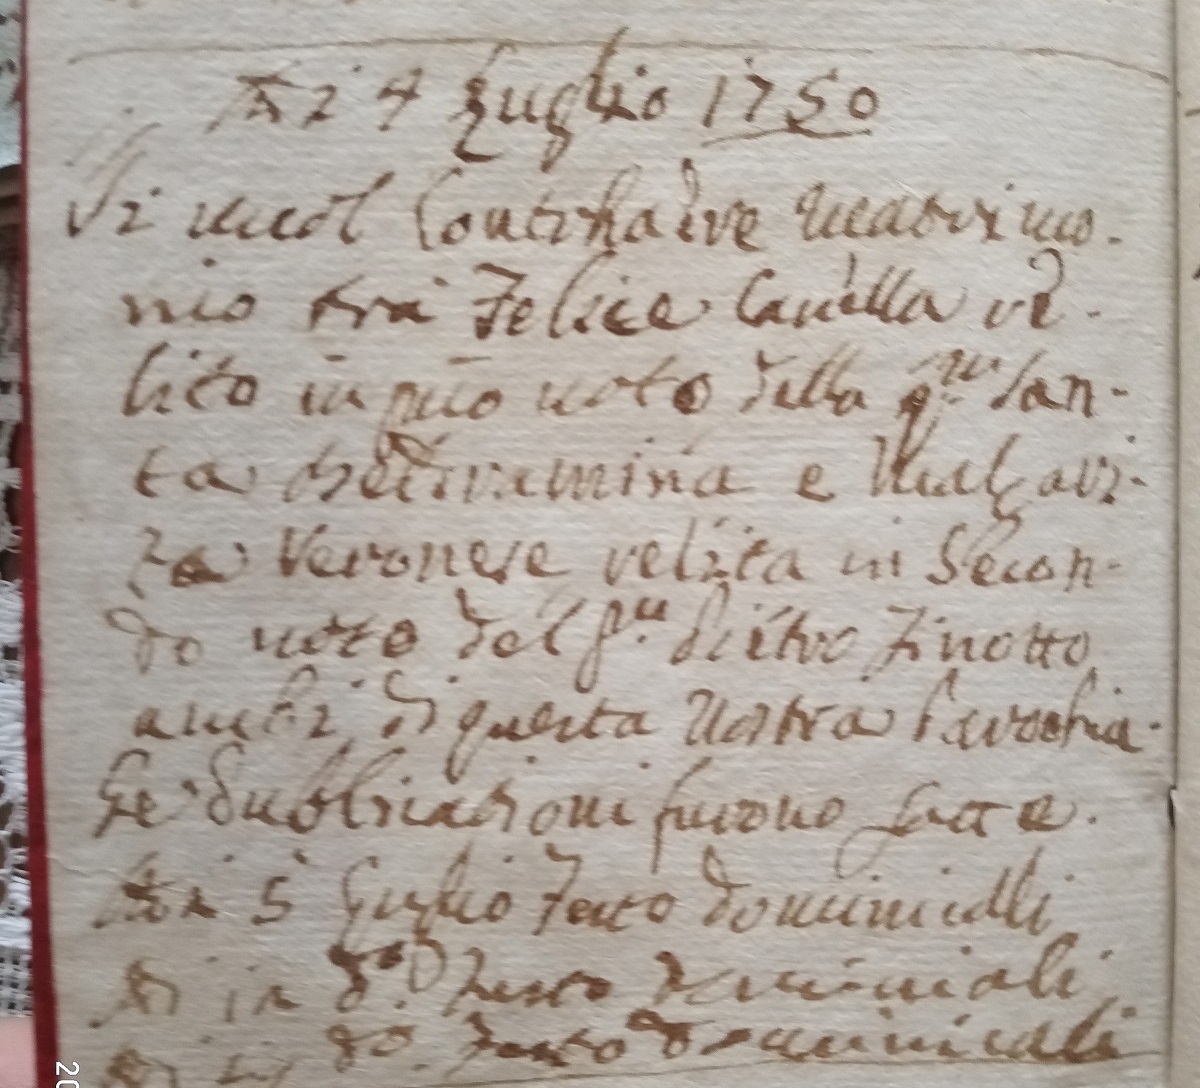 Ai 4 Luglio 1750
Si vuol Contrhaere matrimo-
nio tra Felice Canella ve-
lito in pmo voto della qm San-
ta e Malgari-
ta Veronese velita in Secon-
do voto del qm Pietro Finotto
ambi di questa Nostra Parochia.
Le Publicationi furono fatte.
Ai 5 Luglio Festo Dominicalli
Ai in do. Festo Dominicali
Ai do Festo Dominicali
20